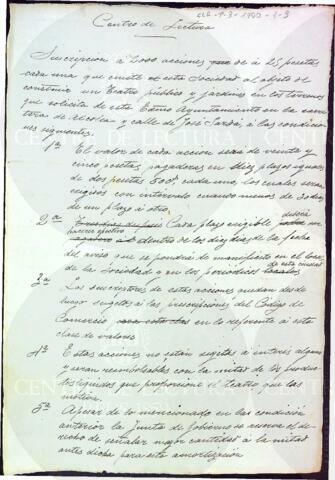 CL6-9.3-1900-1-3
Centro de Lectura
Suscripcion á 2,000 acciones de á 25 pesetas
cada una que emite esta Sociedad al objeto de
construir un Teatro público y jardines en los terrenos
que solicita de este Excmo Ayuntamiento en la carre-
tera de Alcolea y calle de José Sardá á las condicio-
nes siguientes.
1ª El valor de cada accion será de veinte y
cinco pesetas, pagaderas en diez plazos iguales
de dos pesetas 50 cs cada uno, los cuales serán
exigidos con intérvalo cuando menos de 30 dias
de un plazo á otro.
2ª Cada plazo exigible deberá
hacerse efectivo dentro de los diez dias de la fecha
del aviso que se pondrá de manifiesto en el local
de la Sociedad y en los periodicos de esta ciudad
3ª Los suscritores de estas acciones quedan desde
luego sugetos á las prescripciones del Código de
Comercio en lo referente á esta
clase de valores
4ª Estas acciones no están sugetas á interés alguno
y serán reembolsables con la mitad de los produc-
tos líquidos que proporcione el teatro que las
motiva.
5ª Apesar de lo mencionado en la condición
anterior la Junta de Gobierno se reserva el de-
recho de señalar mayor cantidad á la mitad
antes dicha para esta amortización